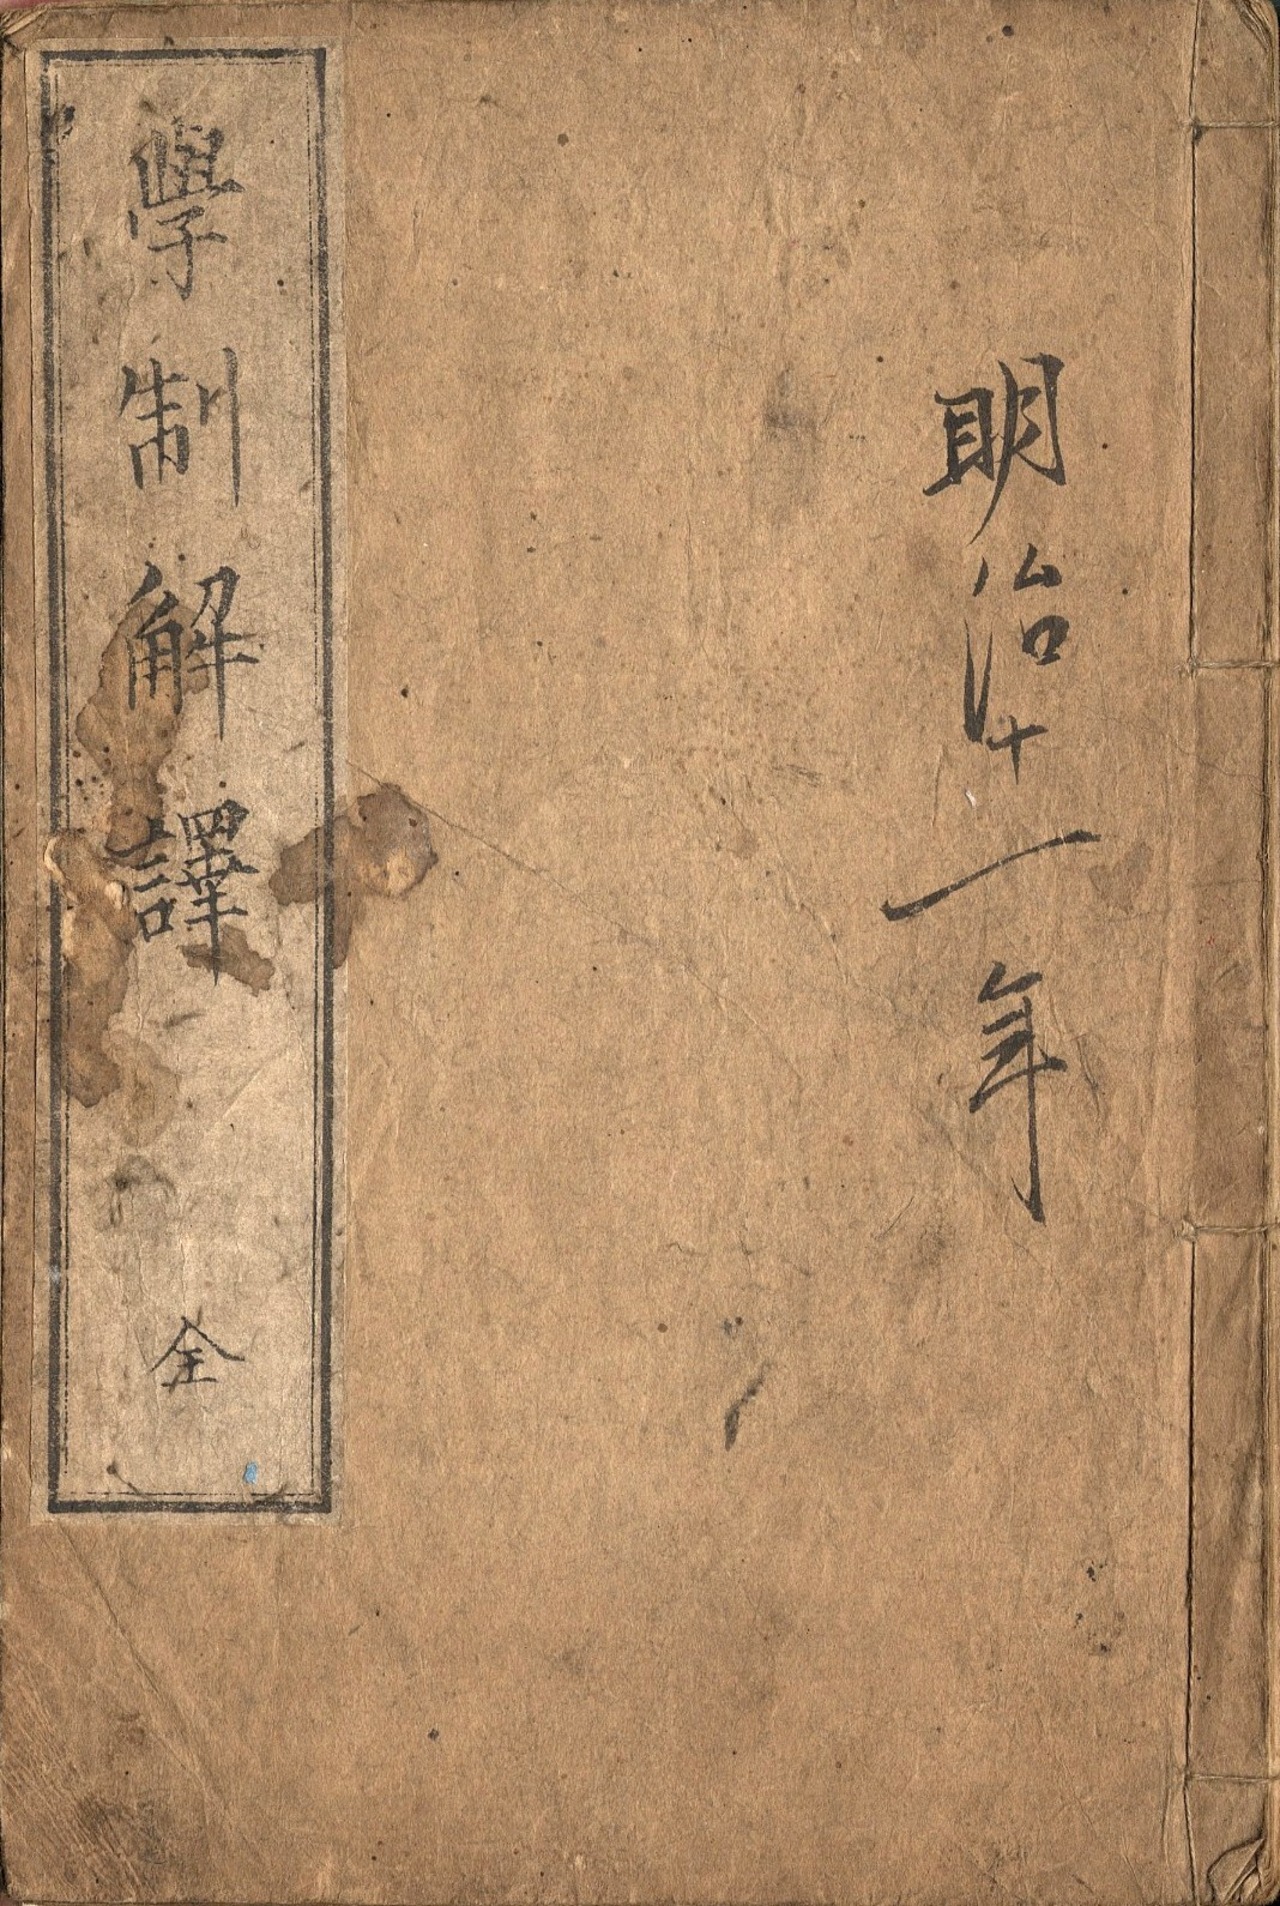 明治十一年
學制解譯
全